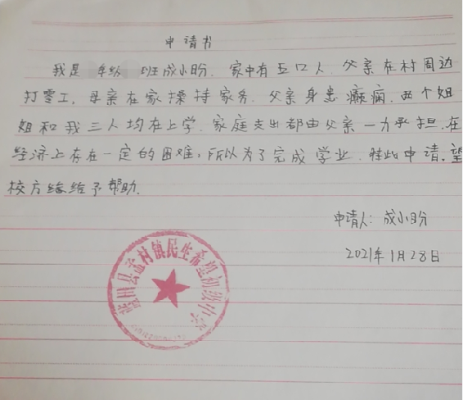 申请书
我是 年级 班成小盼,家中有五口人,父亲在村周边
打零工,母亲在家操持家务,父亲身患癫痫,两个姐
姐和我三人均在上学,家庭支出都由父亲一力承担,在
经济上存在一定的困难,所以为了完成学业,特此申请,望
校方能给予帮助.
申请人:成小盼
2021年1月28日
蓝田县孟村镇民生希望初级中学